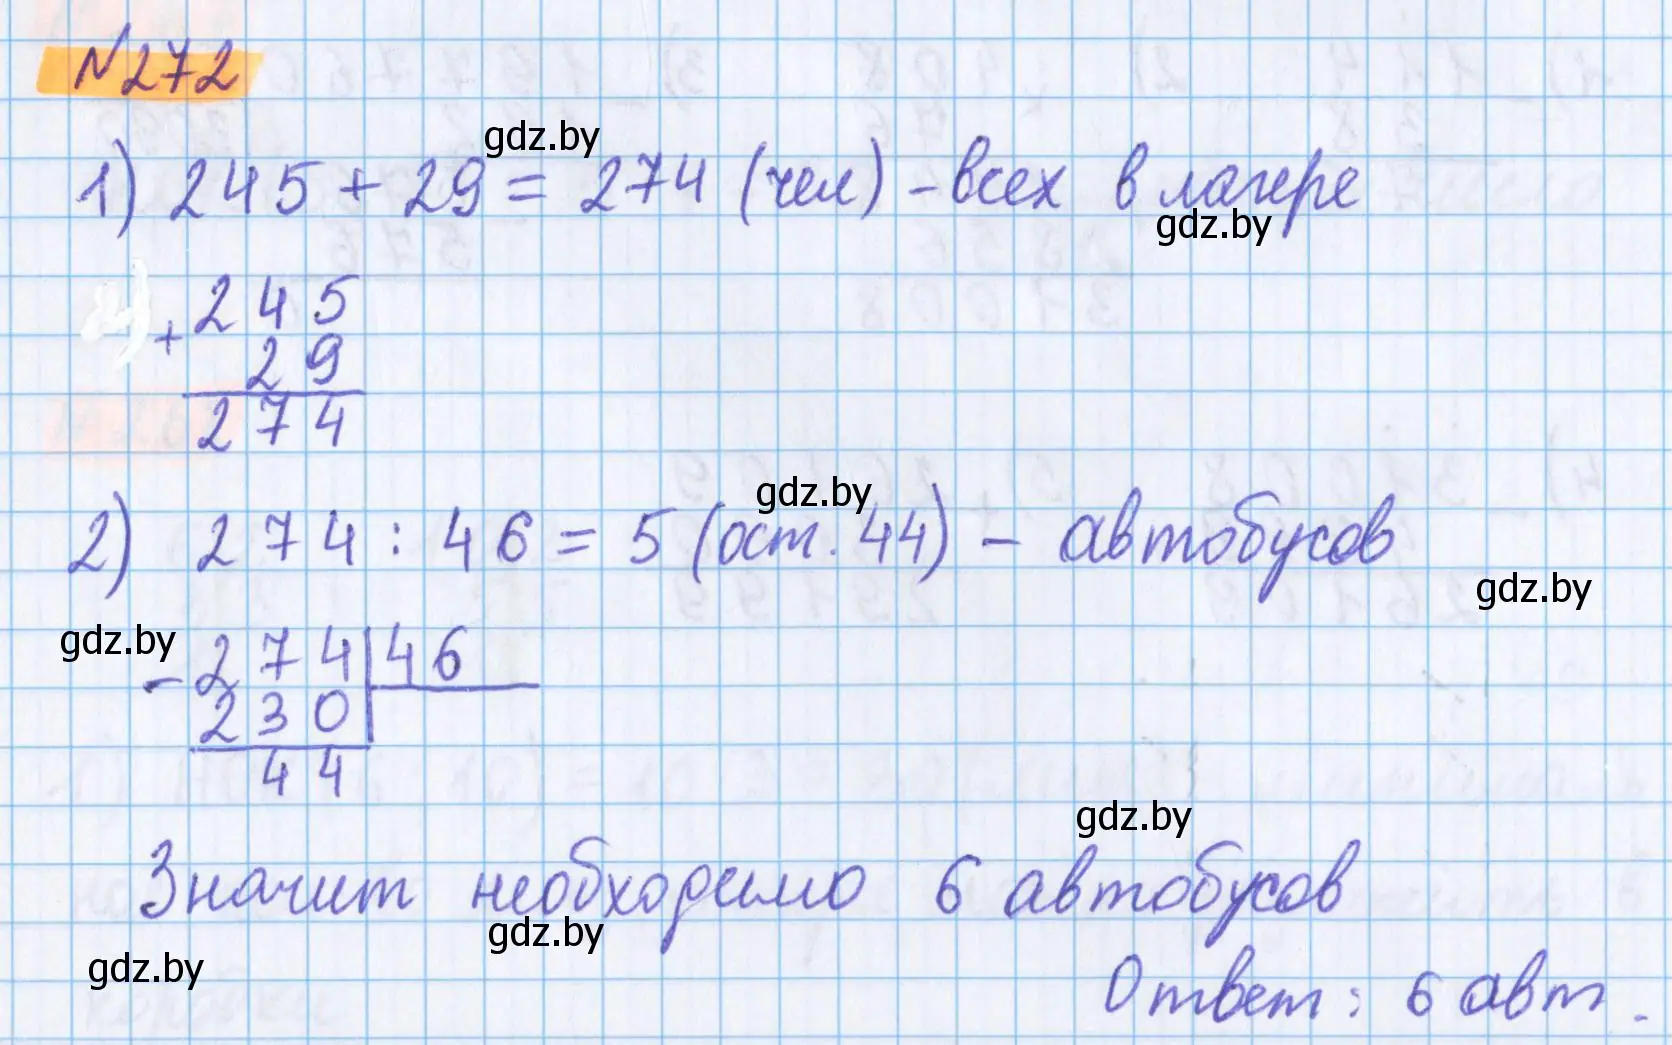 №272
gdz.by
1) 245 + 29 = 274 (чел) - всех в лагере
gdz.by
+ 245
29
274
gdz.by
2) 274 : 46 = 5 (ост. 44) - автобусов
gdz.by
gdz.by
- 274 | 46
230
44
gdz.by
Значит необходимо 6 автобусов
gdz.by
gdz.by
Ответ: 6 авт.